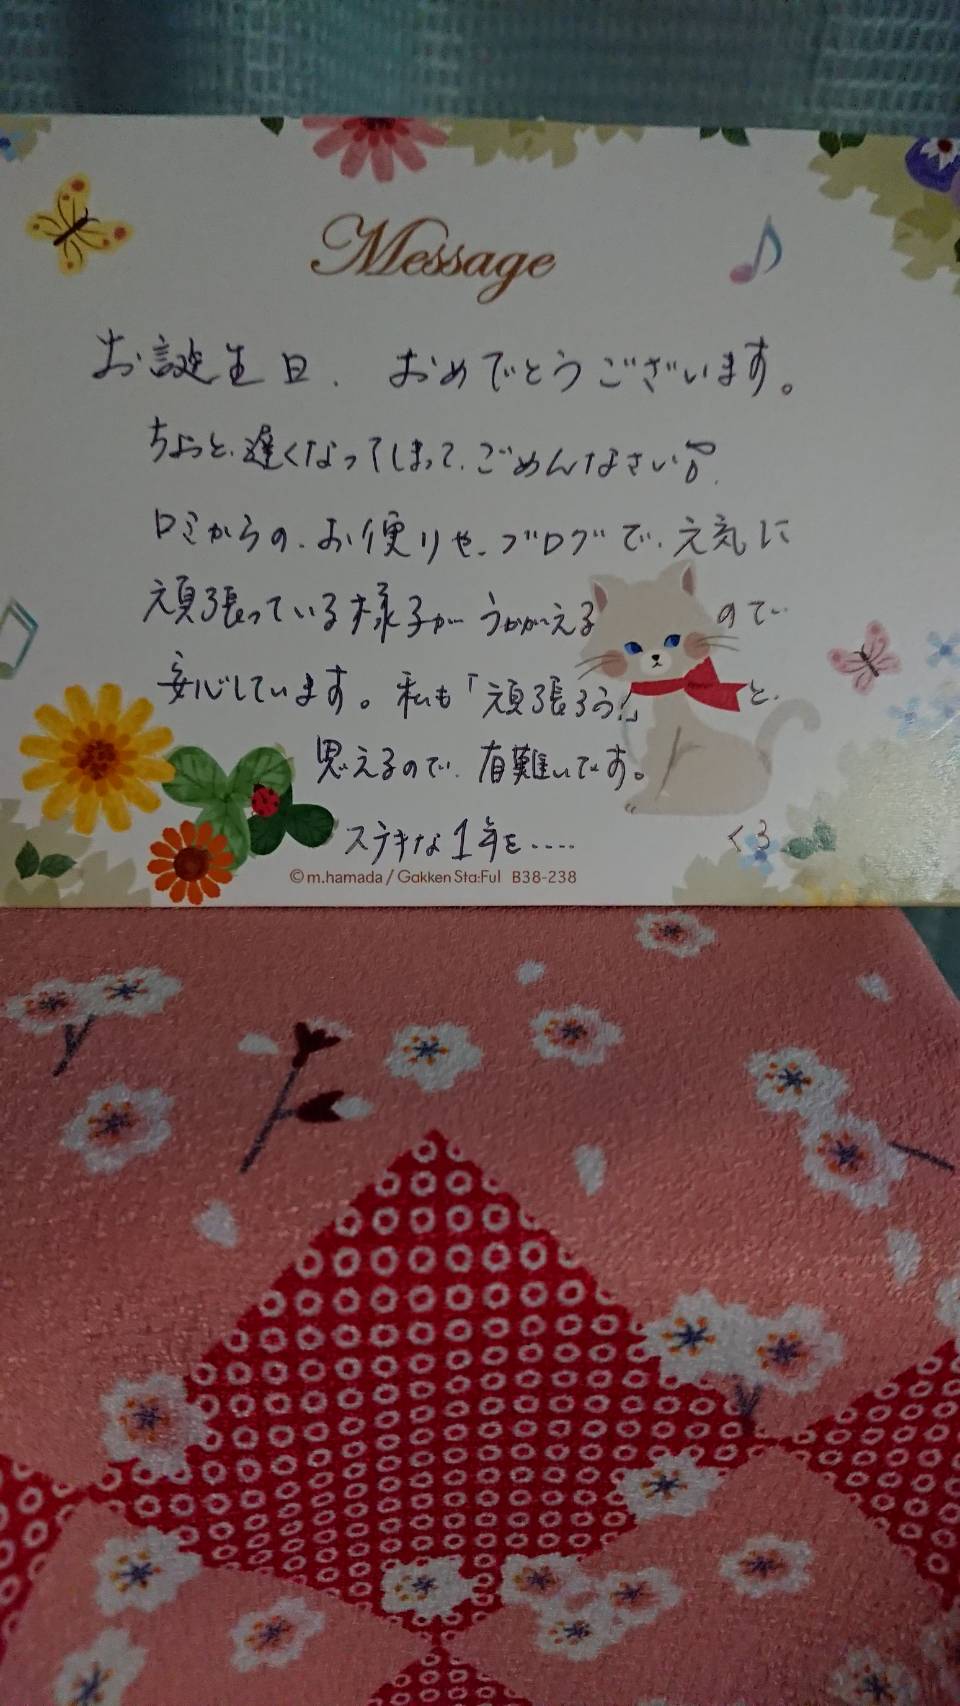 Message
お誕生日、おめでとうございます。
ちょっと、遅くなってしまって、ごめんなさい
ロミからの、お便りや、ブログで、元気に
頑張っている様子が うかがえるので
安心しています。私も「頑張ろう!」と、
思えるので、有難いです。
ステキな1年を‥‥
© m.hamada / Gakken Sta:Ful B38-238